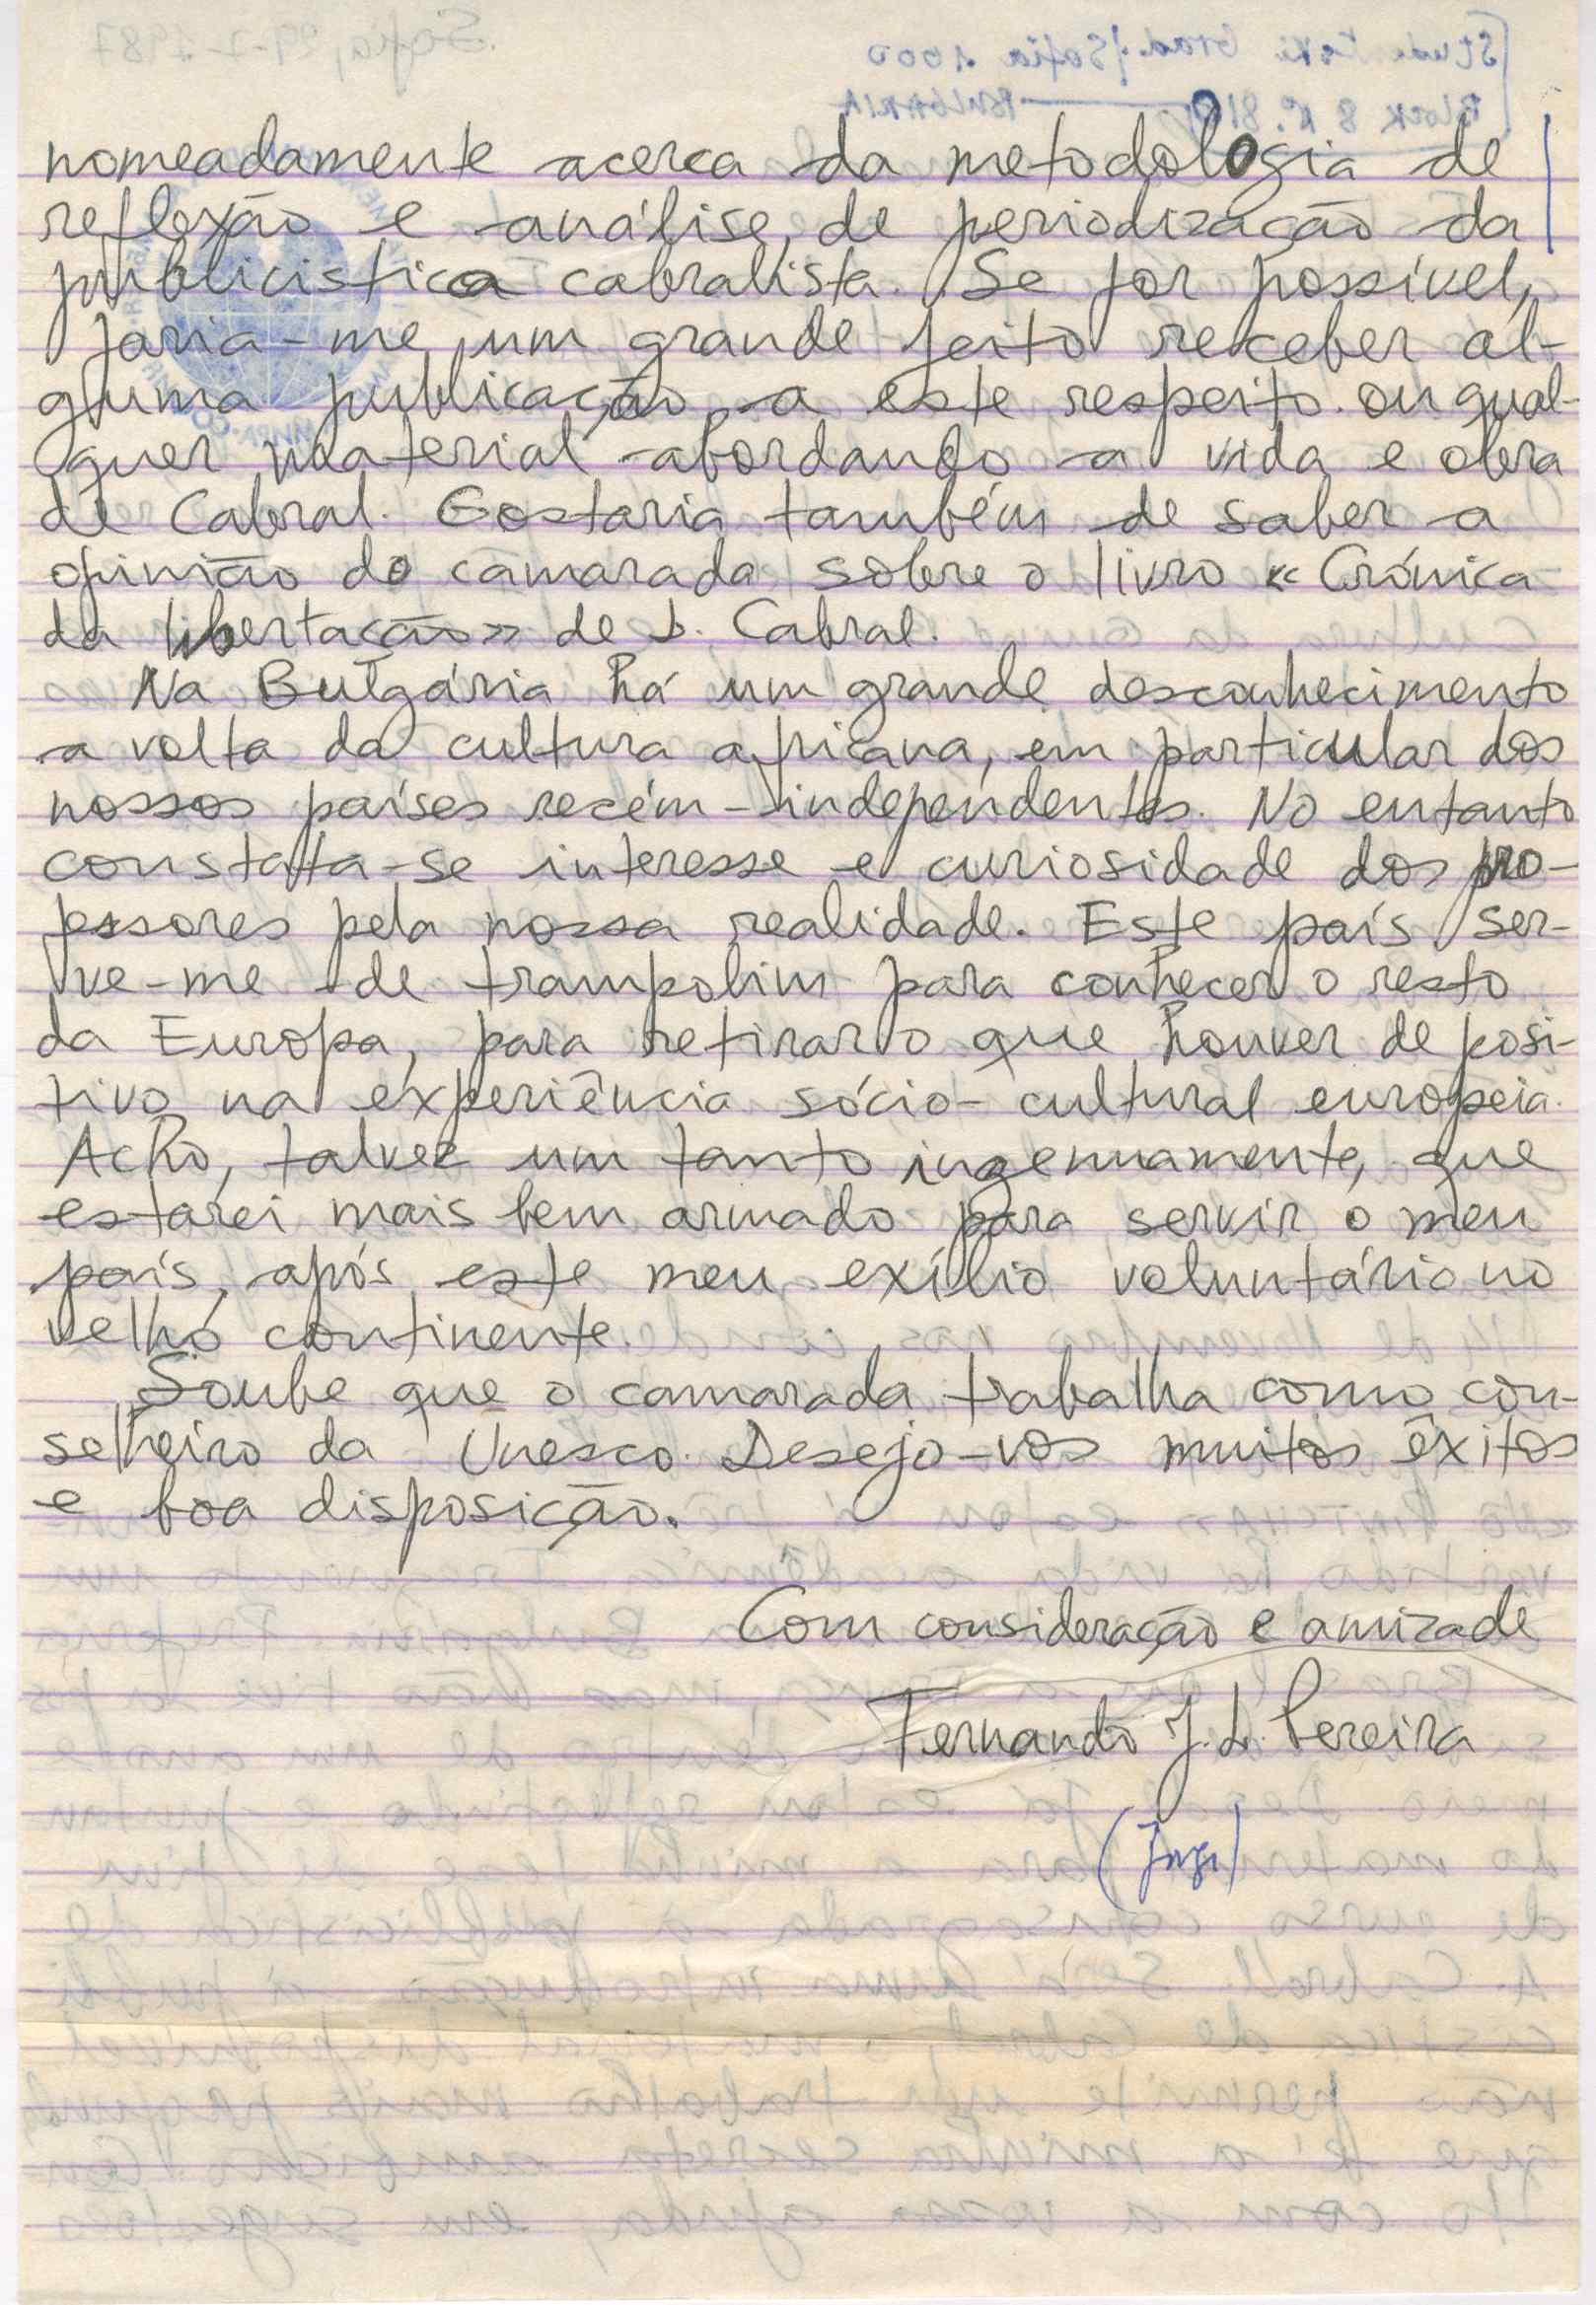 nomeadamente acerca da metodologia de
reflexão e análise, de periodização da
publicistica cabralista. Se for possível,
faria-me um grande jeito receber al-
guma publicação a este respeito ou qual-
quer material abordando a vida e obra
de Cabral. Gostaria também de saber a
opinião do camarada sobre o livro «Crónica
da libertação» de L. Cabral.
Na Bulgária há um grande desconhecimento
a volta da cultura africana, em particular dos
nossos países recém-independentes. No entanto
constata-se interesse e curiosidade dos pro-
fessores pela nossa realidade. Este país ser-
ve-me de trampolim para conhecer o resto
da Europa, para retirar o que houver de posi-
tivo na experiência sócio-cultural europeia.
Acho, talvez um tanto ingenuamente, que
estarei mais bem armado para servir o meu
país, após este meu exílio voluntário no
velho continente.
Soube que o camarada trabalha como con-
selheiro da Unesco. Desejo-vos muitos êxitos
e boa disposição.
Com consideração e amizade
Fernando J. L. Pereira